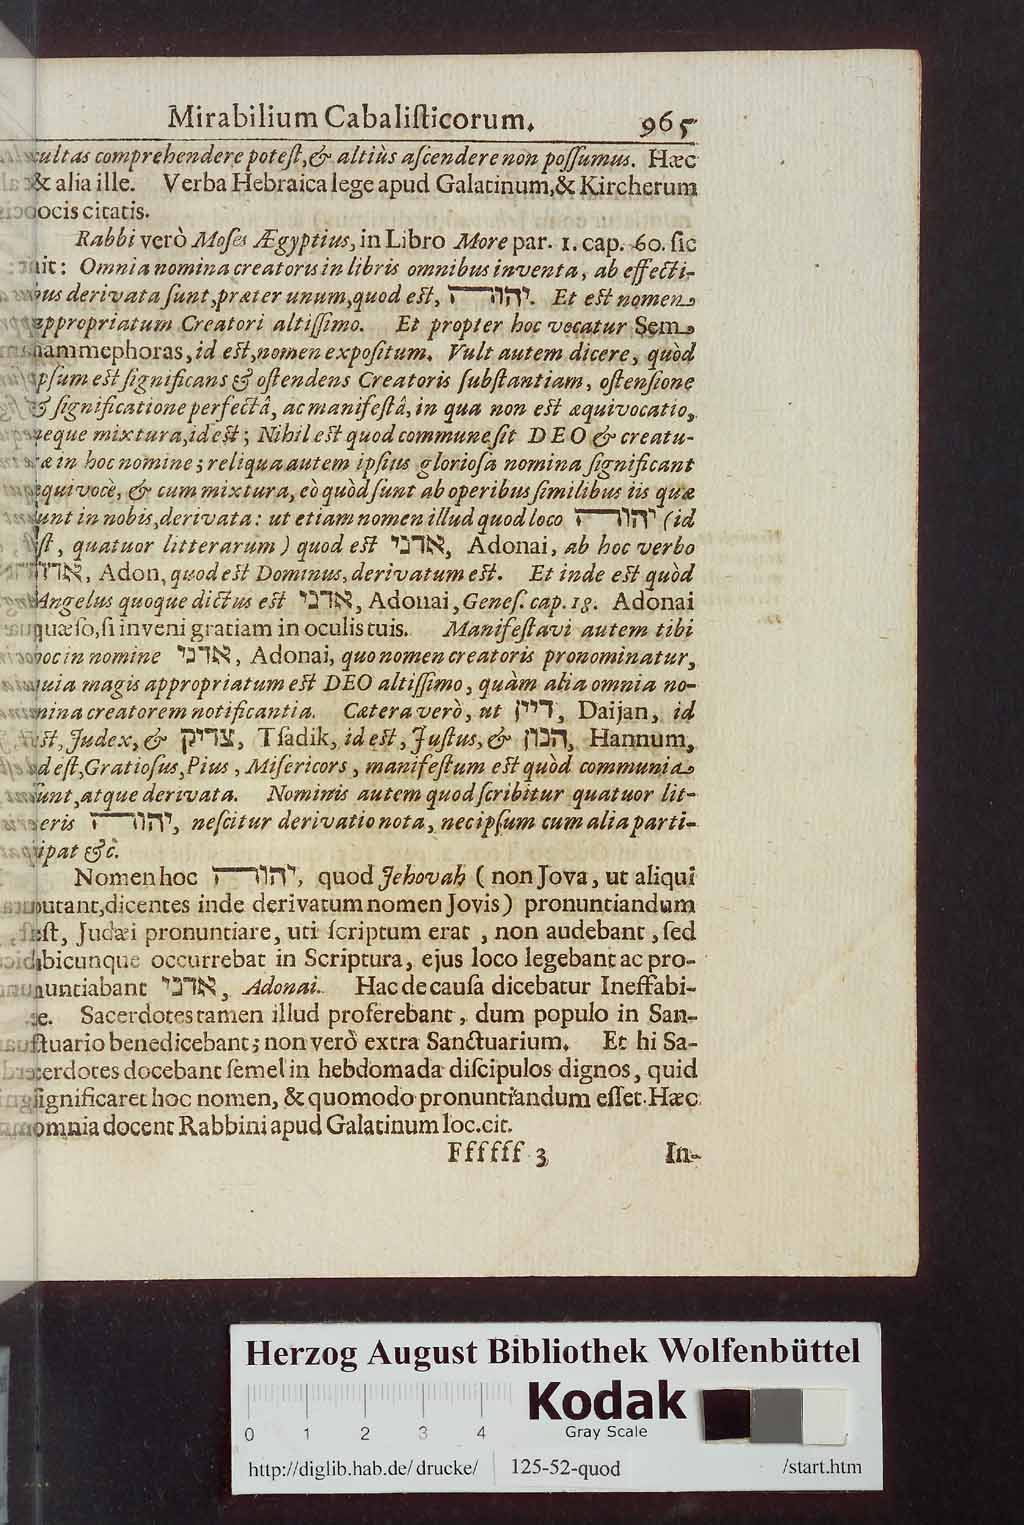 Mirabilium Cabaliſticorum. 965
cultas comprehendere poteſt, & altiùs aſcendere non poſſumus. Hæc
& alia ille. Verba Hebraica lege apud Galatinum, & Kircherum
locis citatis.
Rabbi verò Moſes Ægyptius, in Libro More par. 1. cap. 60. ſic
ait: Omnia nomina creatoris in libris omnibus inventa, ab effecti-
bus derivata ſunt, præter unum, quod eſt, יהוה. Et eſt nomen
appropriatum Creatori altiſſimo. Et propter hoc vocatur Sem
hammephoras, id eſt, nomen expoſitum. Vult autem dicere, quòd
ipſum eſt ſignificans & oſtendens Creatoris ſubſtantiam, oſtenſione
& ſignificatione perfectâ, ac manifeſtâ, in qua non eſt æquivocatio,
neque mixtura, id eſt; Nihil eſt quod commune ſit DEO & creatu-
ræ in hoc nomine; reliqua autem ipſius glorioſa nomina ſignificant
æquivocè, & cum mixtura, eò quòd ſunt ab operibus ſimilibus iis quæ
ſunt in nobis, derivata: ut etiam nomen illud quod loco יהוה (id
eſt, quatuor litterarum) quod eſt אדני, Adonai, ab hoc verbo
אדון, Adon, quod eſt Dominus, derivatum eſt. Et inde eſt quòd
Angelus quoque dictus eſt אדני, Adonai, Geneſ. cap. 18. Adonai
quæſo, ſi inveni gratiam in oculis tuis. Manifeſtavi autem tibi
hoc in nomine אדני, Adonai, quo nomen creatoris pronominatur,
quia magis appropriatum eſt DEO altiſſimo, quàm alia omnia no-
mina creatorem notificantia. Cætera verò, ut דיין, Daijan, id
eſt, Judex, & צדיק, Tſadik, id eſt, Juſtus, & הנון, Hannum,
id eſt, Gratioſus, Pius, Miſericors, manifeſtum eſt quòd communia
ſunt, atque derivata. Nominis autem quod ſcribitur quatuor lit-
teris יהוה, neſcitur derivatio nota, nec ipſum cum alia parti-
cipat &c.
Nomen hoc יהוה, quod Jehovah (non Jova, ut aliqui
putant, dicentes inde derivatum nomen Jovis) pronuntiandum
eſt, Judæi pronuntiare, uti ſcriptum erat, non audebant, ſed
ubicunque occurrebat in Scriptura, ejus loco legebant ac pro-
nuntiabant אדני, Adonai. Hac de cauſa dicebatur Ineffabi-
le. Sacerdotes tamen illud proferebant, dum populo in San-
ctuario benedicebant; non verò extra Sanctuarium. Et hi Sa-
cerdotes docebant ſemel in hebdomada diſcipulos dignos, quid
ſignificaret hoc nomen, & quomodo pronuntiandum eſſet. Hæc
omnia docent Rabbini apud Galatinum loc. cit.
Ffffff 3 In-
Herzog August Bibliothek Wolfenbüttel
Kodak
Gray Scale
0 1 2 3 4
http://diglib.hab.de/drucke/ 125-52-quod /start.htm